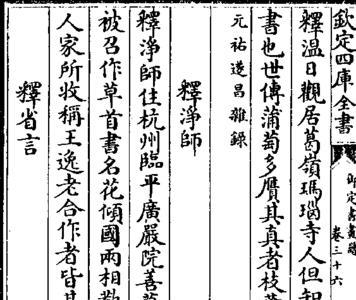 欽定四庫全書
御定書畫譜
卷三十六
釋温日觀居葛嶺瑪瑙寺人但知
書也世傳蒲萄多贋其真者枝葉
元祐遂昌雜錄
釋淨師
釋淨師住杭州臨平廣嚴院善草
被召作草首書名花傾國兩相歡
人家所收稱王逸老合作者皆其
釋省言